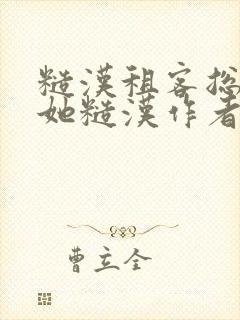 糙漢租客總
她糙漢作者
曹立全